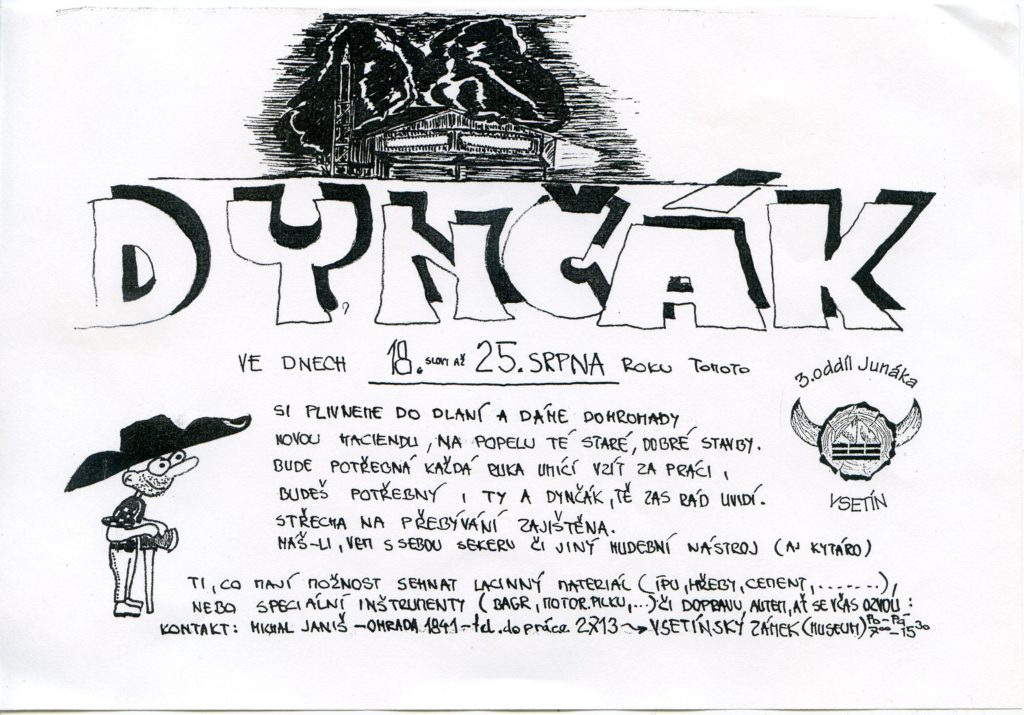 DYNČÁK
VE DNECH 18. SLOVY AŽ 25. SRPNA ROKU TOHOTO
3. oddíl Junáka
VSETÍN
SI PLIVNEME DO DLANÍ A DÁME DOHROMADY
NOVOU HACIENDU, NA POPELU TÉ STARÉ, DOBRÉ STAVBY.
BUDE POTŘEBNÁ KAŽDÁ RUKA UMÍCÍ VZÍT ZA PRÁCI,
BUDEŠ POTŘEBNÝ I TY A DYNČÁK, TĚ ZAS RÁD UVIDÍ.
STŘECHA NA PŘEBÝVÁNÍ ZAJIŠTĚNA.
MÁŠ-LI, VEM S SEBOU SEKERU ČI JINÝ HUDEBNÍ NÁSTROJ (AJ KYTÁRO)
TI, CO MAJÍ MOŽNOST SEHNAT LACINNÝ MATERIÁL (ÍPU, HŘEBY, CEMENT, .......),
NEBO SPECIÁLNÍ INŠTRUMENTY (BAGR, MOTOR.PILKU,...) ČI DOPRAVU, AUTEM, AŤ SE VČAS OZVOU:
KONTAKT: MICHAL JANIŠ – OHRADA 1841 – tel. do práce 2713 → VSETÍNSKÝ ZÁMEK (MUSEUM) Po – Pá 7⁰⁰ – 15³⁰